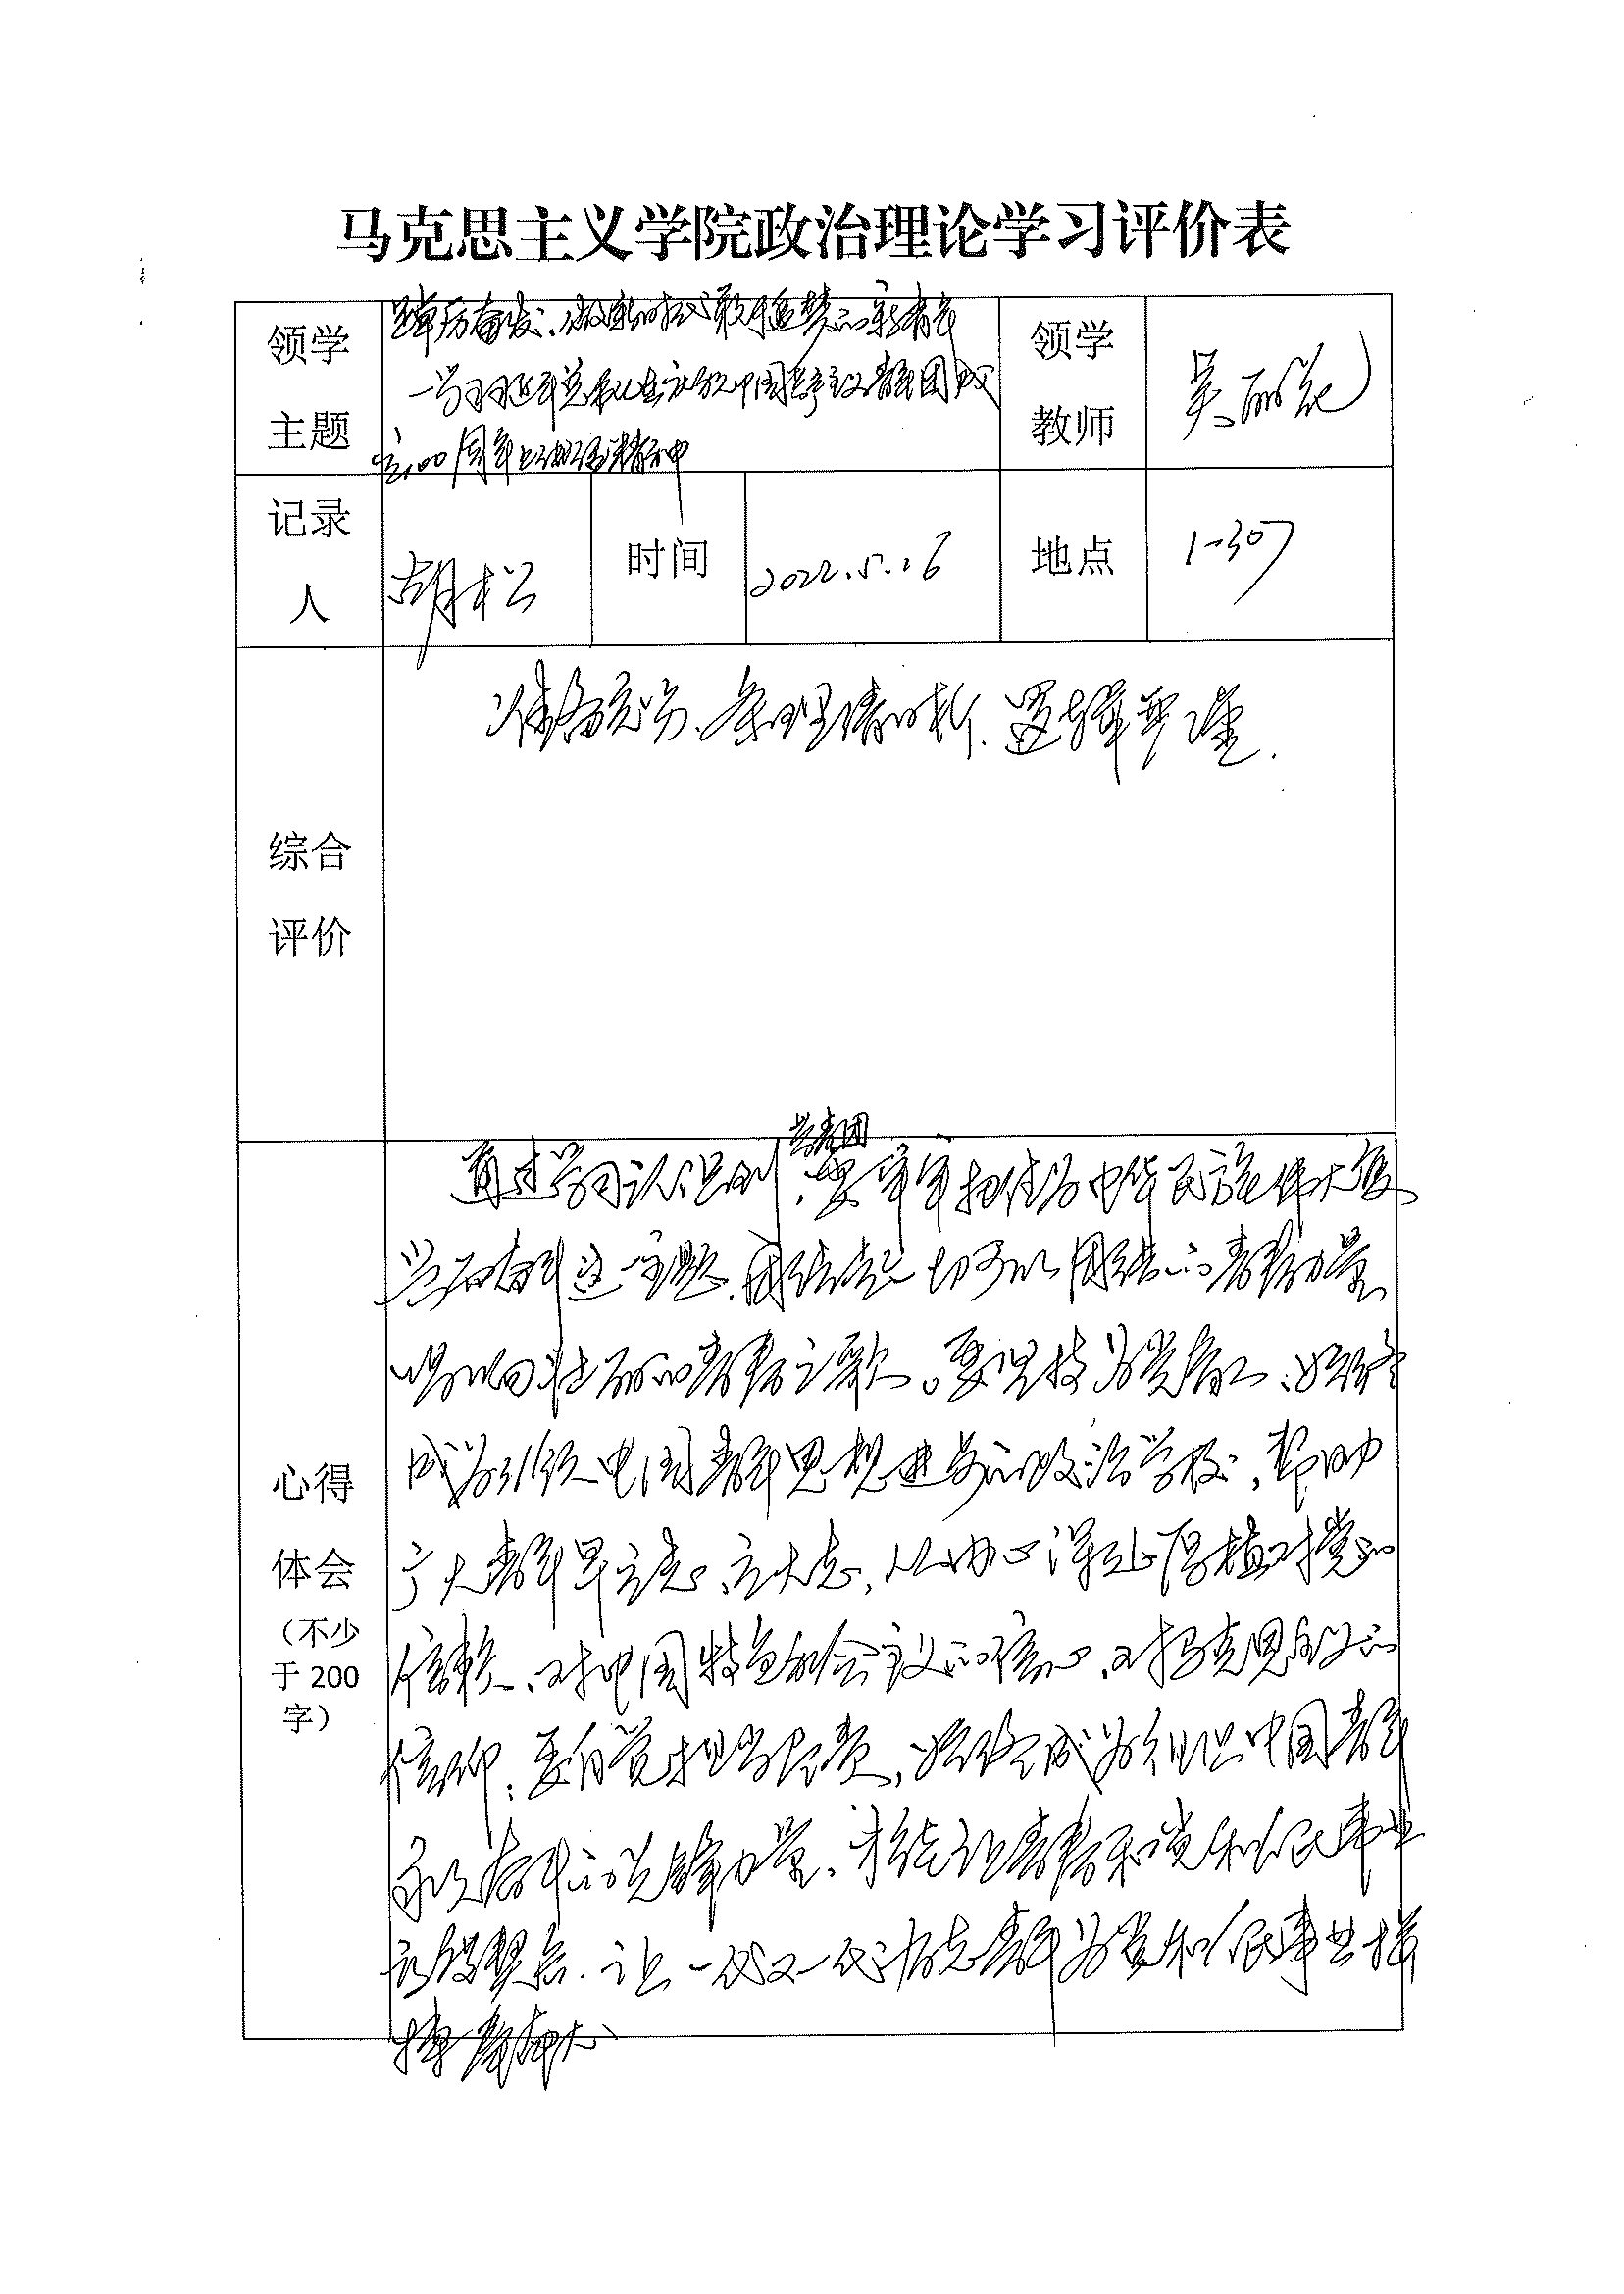 马克思主义学院政治理论学习评价表
领学
主题
踔厉奋发、做新时代敢于追梦的新青年
—学习习近平总书记在庆祝中国共产主义青年团成
立100周年上的讲话精神
领学
教师
吴丽
记录
人
胡松
时间
2022.5.26
地点
1-307
综合
评价
准备充分、条理清晰、逻辑严谨.
心得
体会
(不少
于 200
字)
共青团
通过学习认识到,要牢牢扭住为中华民族伟大复
兴而奋斗这一主题.团结起一切可以团结的青春力量,
唱响壮丽的青春之歌。要坚持为党育人、始终
成为引领中国青年思想进步的政治学校,帮助
广大青年早立志、立大志,从内心深处厚植对党的
信赖、对中国特色社会主义的信心、对马克思主义的
信仰;要自觉担当尽责,始终成为组织中国青年
永久奋斗的先锋力量.才能让青春和党和人民事业
让一代又一代有志青年为党和人民事业
奋斗